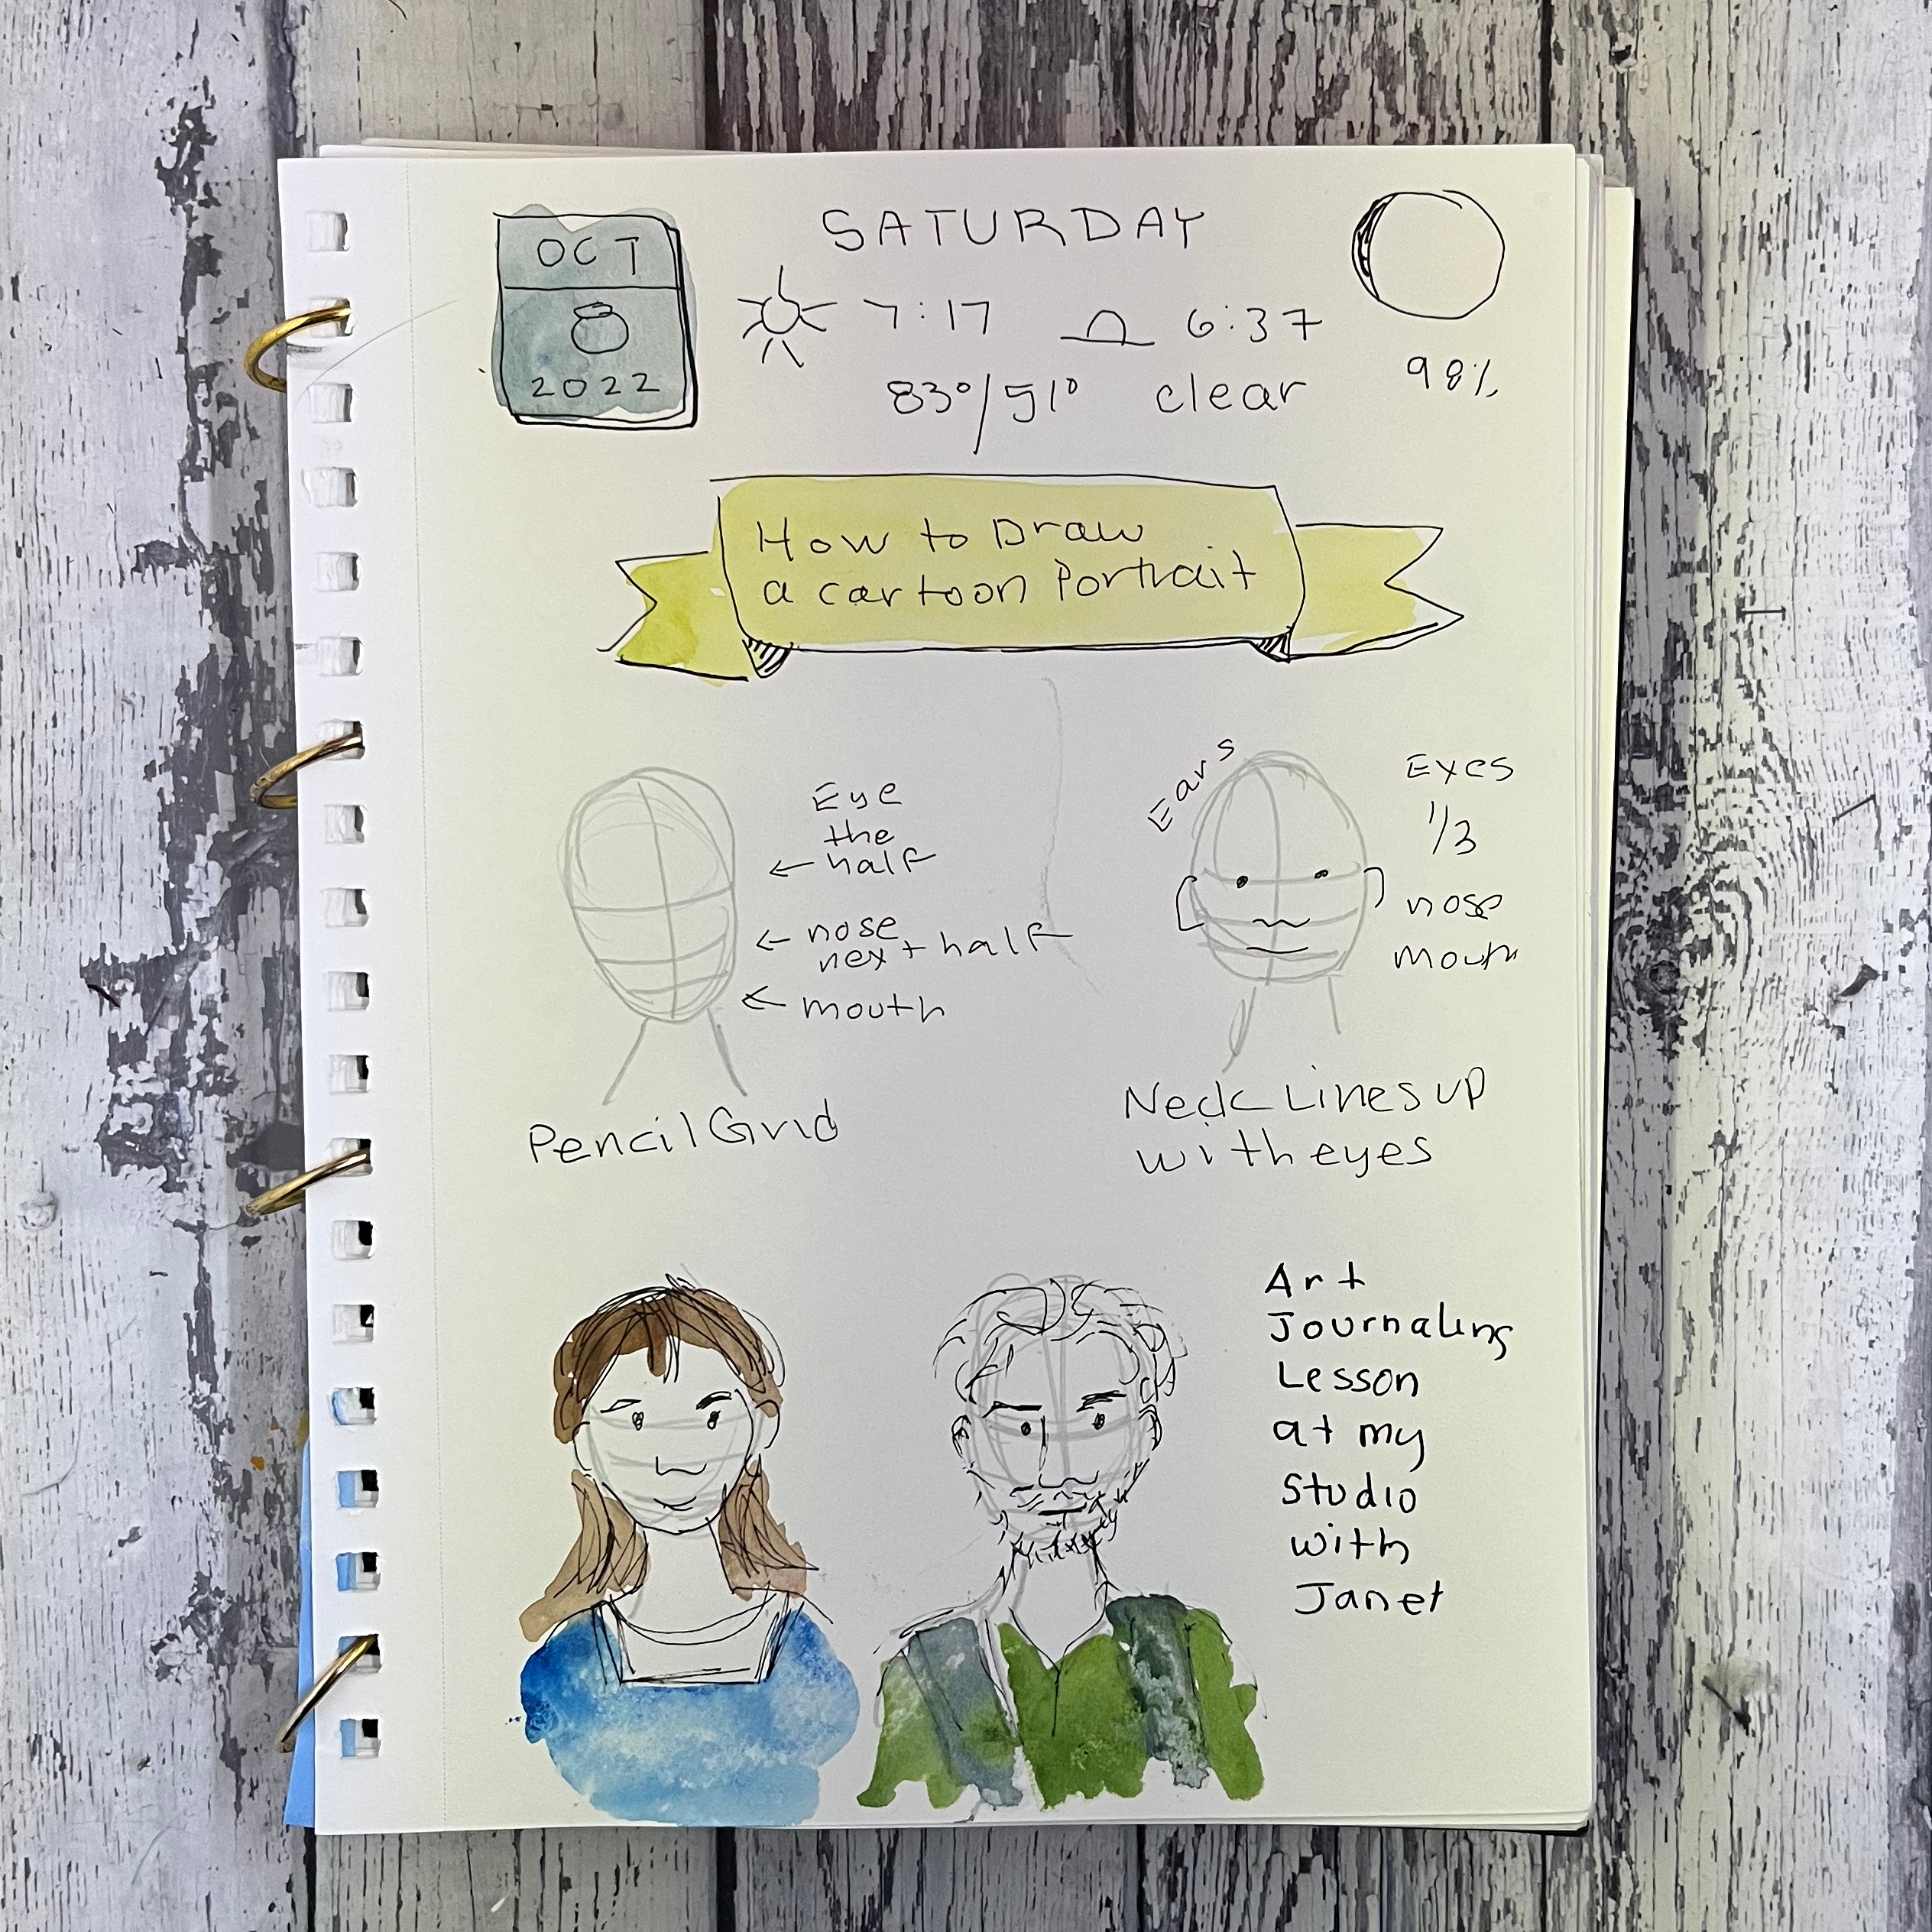 SATURDAY
OCT
8
2022
7:17 6:37
83°/51° clear
98%
How to Draw
a cartoon Portrait
Eye
the
half
nose
next half
mouth
Pencil Grid
Ears
Eyes
1/3
nose
mouth
Neck Lines up
with eyes
Art
Journaling
Lesson
at my
studio
with
Janet